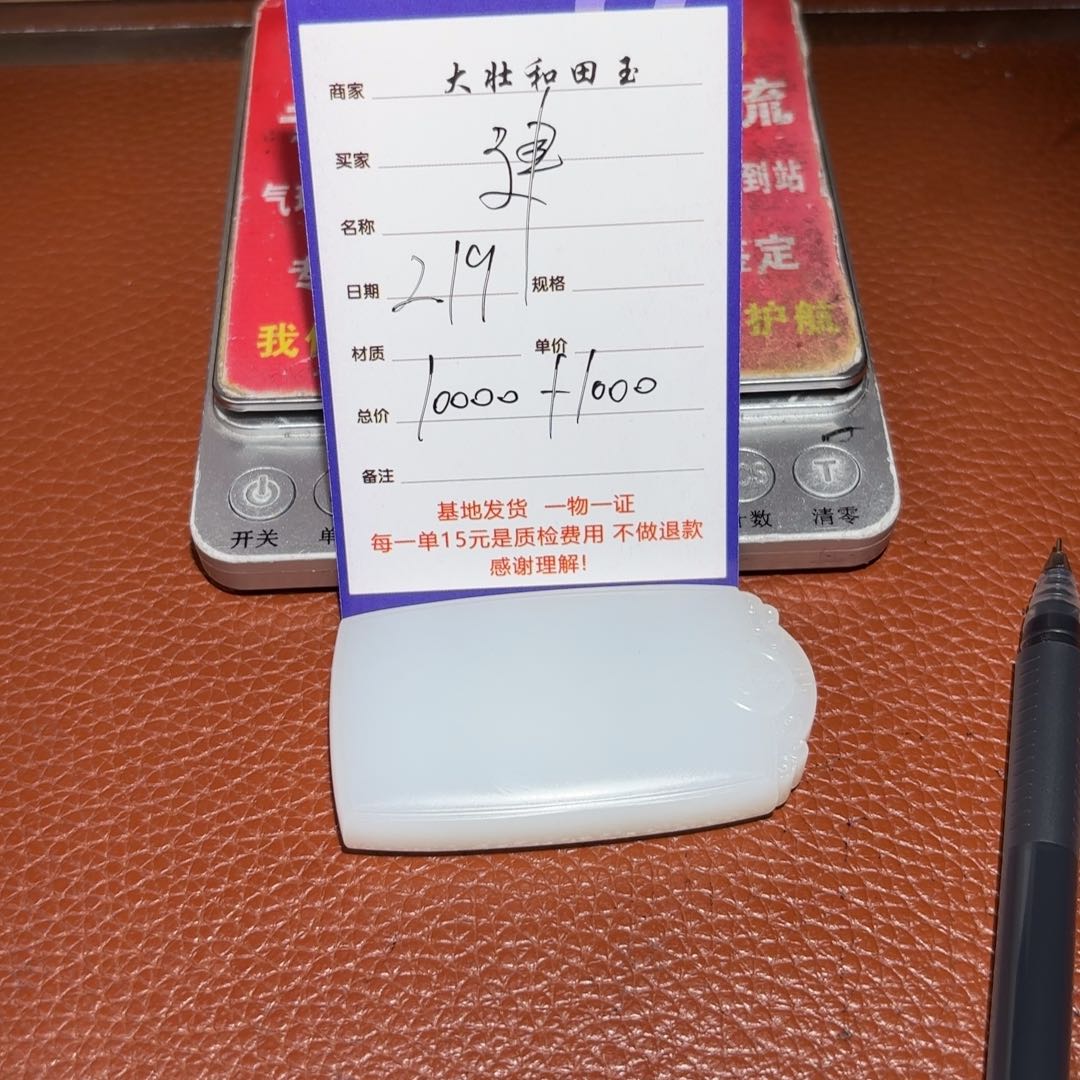 商家 大壮和田玉
买家 建
名称
日期 219 规格
材质 单价
总价 10000+1000
备注
基地发货 一物一证
每一单15元是质检费用 不做退款
感谢理解!
流
气
到站
定
我
护航
开关
单
计数
T
清零